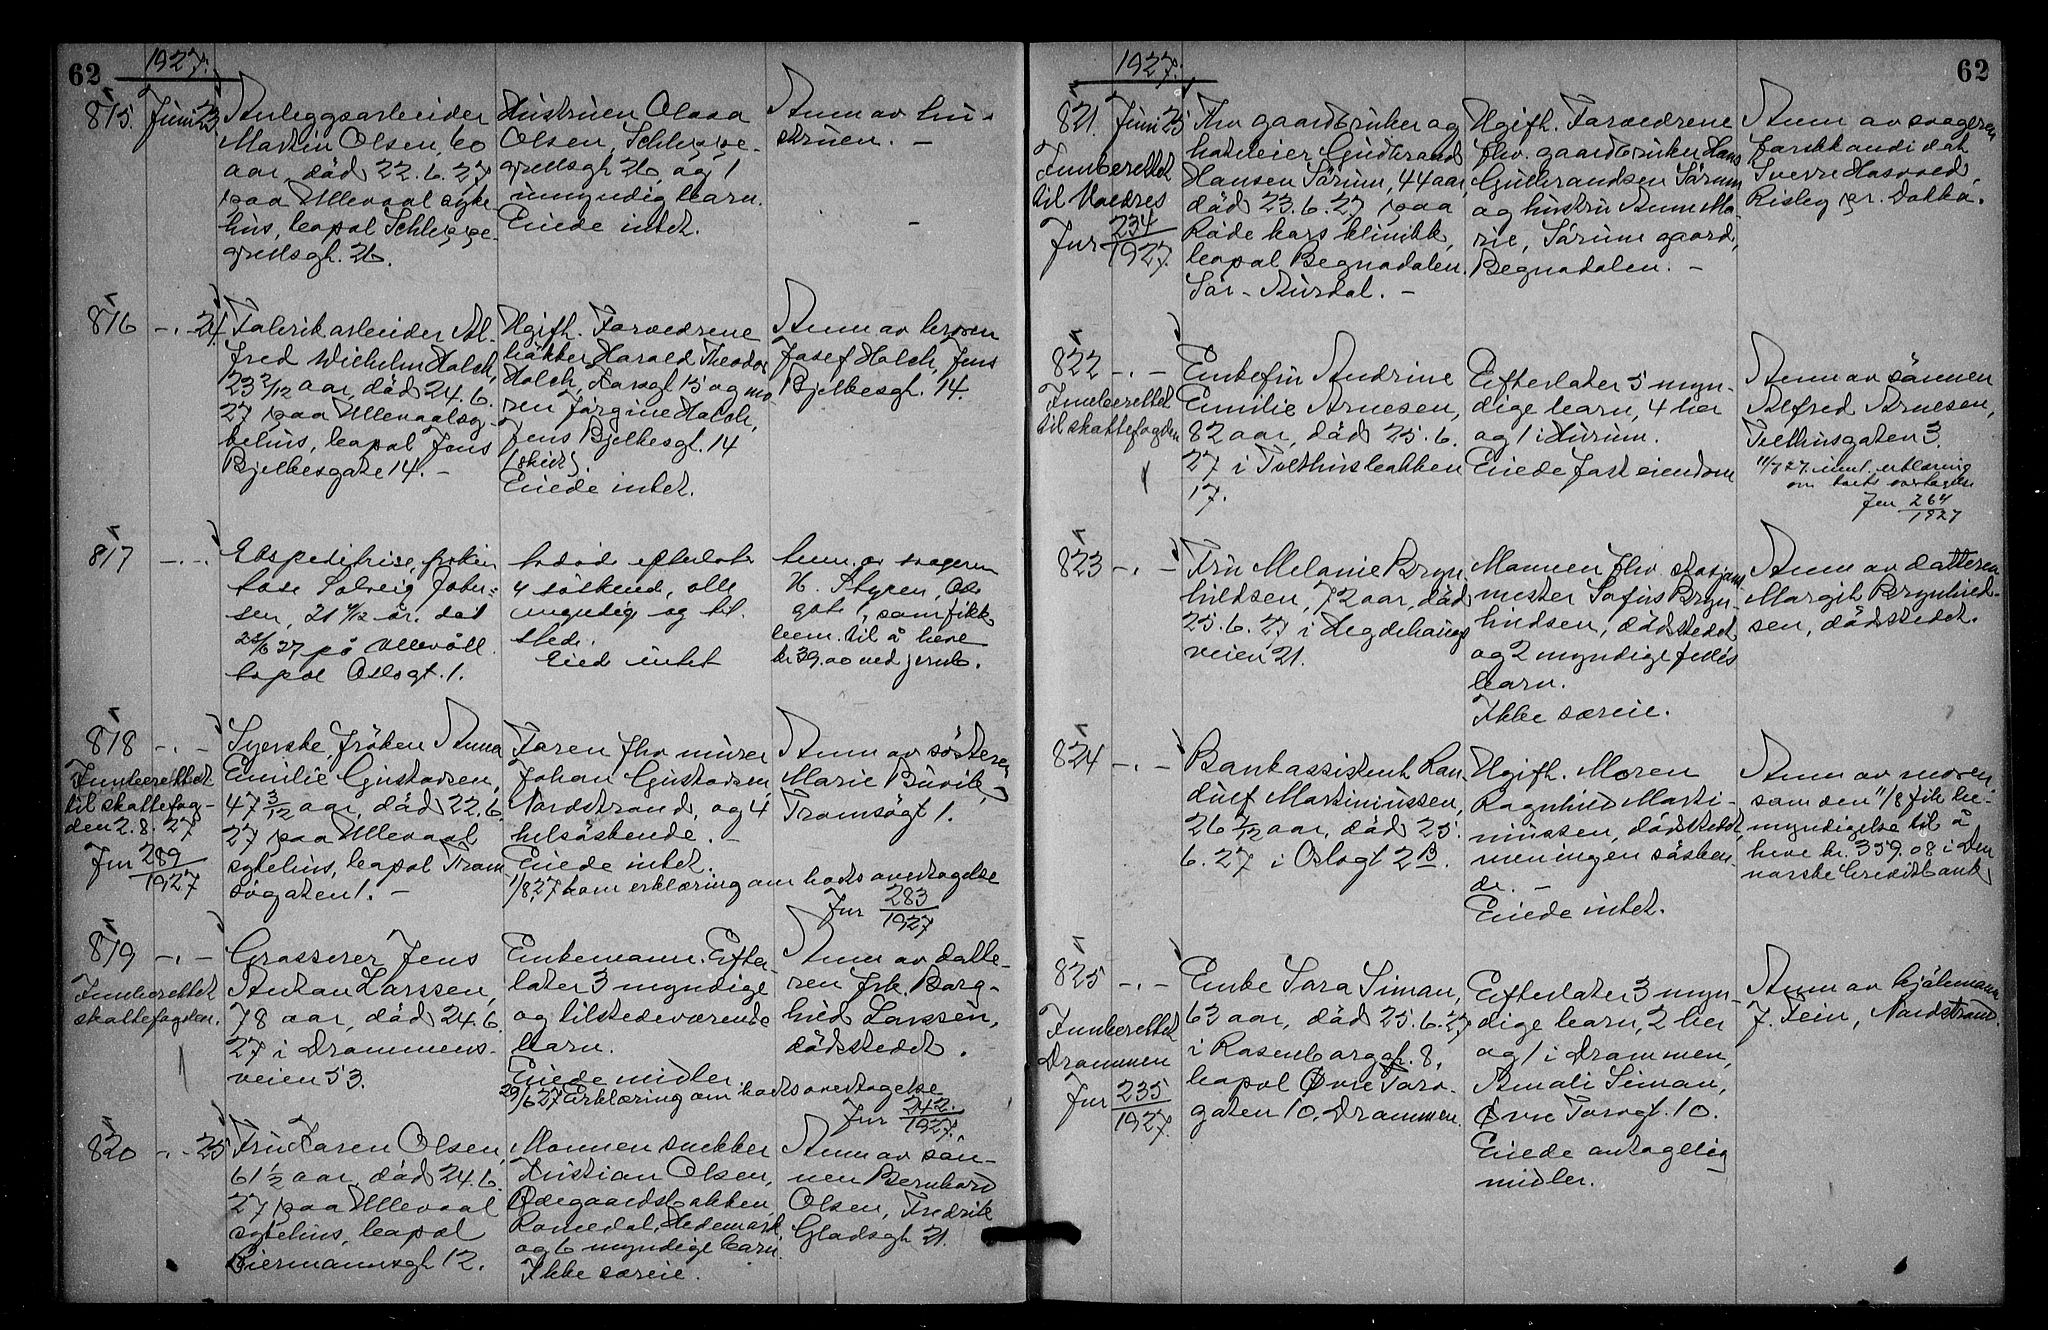 62
1927.
815. Juni 23
Anleggsarbeider
Martin Olsen, 60
aar, død 22.6.27
paa Ullevaal syke-
hus, bopæl Schleppe-
grellsgt. 26.
Hustruen Olava
Olsen, Schleppe-
grellsgt 26, og 1
umyndig barn.
Eiede intet.
Anm av hu-
struen. -
816 -.- 24.
Fabrikarbeider Al-
fred Wilhelm Holch,
23 2/12 aar, død 24.6.
27 paa Ullevaal sy-
kehus, bopæl Jens
Bjelkesgate 14. -
Ugift. Forældrene
Harald Theodor
Holch, 15 og mo-
ren Jørgine Holch,
Jens Bjelkesgt. 14
(skilt).
Eiede intet.
Anm av broren
Josef Holch, Jens
Bjelkesgt. 14.
817 -.-
Ekspeditrise, frøken
Solveig Johan-
sen, 21 år. død
25/6 27 på Ullevåll
bopæl Oslogt. 1.
avdøde efterlot
4 søskend, alle
myndig og til
stede.
Eied intet
Anm. av svogeren
H. Styren, Oslo
gate 1, som fikk
bem. til å heve
kr 39,00 ved jernb.
818 -.-
Innberettet
til skattefog-
den 2.8.27
Jnr 289/1927
Syerske, frøken Anna
Emilie Gustavsen,
47 3/12 aar, død 22.6.
27 paa Ullevaal
sykehus, bopæl Trom
søgaten 1. -
Faren fhv murer
Johan Gustavsen
Nordstrand, og 4
helsøskende. -
Eiede intet.
1/8 27 kom erklæring om boets overtagelse
Jnr 283/1927
Anm av søsteren
Marie Buvik,
Tromsøgt 1.
819 -.-
Innberettet
skattefogden.
Grosserer Jens
Anton Larssen,
78 aar, død 24.6.
27 i Drammens-
veien 53.
Enkemann. Efter-
later 3 myndige
og tilstedeværende
barn.
Eiede midler.
29/6 27 Erklæring om boets overtagelse
Jnr 242/1927.
Anm av datte-
ren frk. Borg-
hild Larssen,
dødsstedet.
820 -.- 25
Fru Karen Olsen,
61 1/2 aar, død 24.6.
27 paa Ullevaal
sykehus, bopæl
Biermannsgt 12.
Mannen snekker
Kristian Olsen,
Ødegaardsbakken,
Romedal, Hedemark,
og 6 myndige barn.
Ikke særeie.
Anm av søn-
nen Bernhard
Olsen, Fredrik
Gladsgt 21.
62
1927.
821. Juni 25
Innberettet
til Valdres
Jnr 234/1927.
Fhv gaardbruker og
hoteleier Gudbrand
Hansen Sørum, 44 aar,
død 23.6.27 paa
Røde kors klinikk,
bopæl Begnadalen.
Sør-Aurdal. -
Ugift. Forældrene
fhv. gaardbruker Hans
Gulbrandsen Sørum
og hustru Anne Ma-
rie, Sørum gaard,
Begnadalen. -
Anm av svogeren
forstkandidat
Sverre Hasvold,
Risby pr. Dokka.
822 -.-
Innberettet
til skattefogden
Enkefru Andrine
Emilie Arnesen,
82 aar, død 25.6.
27 i Tolthusbakken
17.
Efterlater 5 myn-
dige barn, 4 her
og 1 i Hurum.
Eiede fast eiendom
Anm av sønnen
Alfred Arnesen,
Tolthusgaten 3.
11/7 27 innl. erklæring
om boets overtagelse
Jnr 264/1927
823 -.-
Fru Melanie Bryn-
hildsen, 72 aar, død
25.6.27 i Hegdehaugs
veien 21.
Mannen fhv
mester Sofus Bryn-
hildsen, dødsstedet
og 2 myndige felles
barn.
Ikke særeie.
Anm av datteren
Margit Brynhild-
sen, dødsstedet.
824 -.-
Bankassistent Ran-
dulf Martiniussen,
26 aar, død 25.
6.27 i Oslogt 2 B.
Ugift. Moren
Ragnhild Marti-
niussen, dødsstedet,
men ingen søsken-
de. -
Eiede intet.
Anm av moren
som den 11/8 fik be-
myndigelse til å
heve kr. 359.08 i Den
norske Creditbank
825 -.-
Innberettet
Drammen
Jnr 235/1927.
Enke Sara Siman,
63 aar, død 25.6.27
i Rosenborggt. 8,
bopæl Øvre Torv-
gaten 10, Drammen.
Efterlater 3 myn-
dige barn, 2 her
og 1 i Drammen,
Amali Siman,
Øvre Torvgt. 10.
Eiede antagelig
midler.
Anm av hjelpemann
J. Fein, Nordstrand.